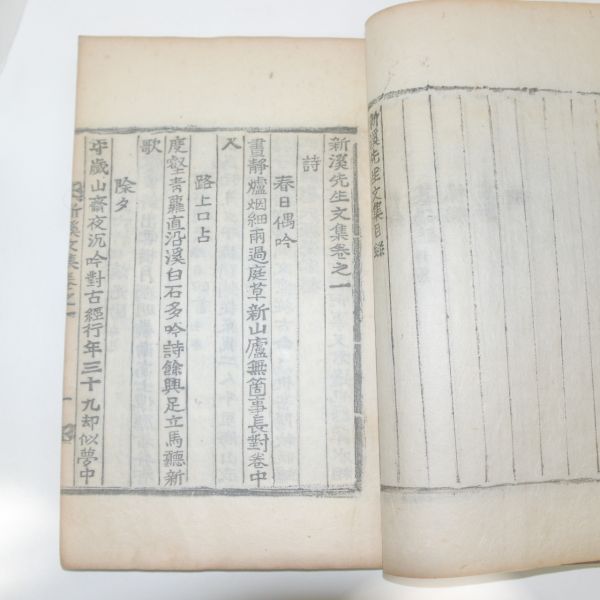 新溪先生文集目錄
新溪先生文集卷之一
詩
春日偶吟
晝靜爐烟細雨過庭草新山廬無箇事長對卷中
人
路上口占
度壑穿巖直沿溪白石多吟詩餘興足立馬聽新
歌
除夕
平歲山齋夜沉吟對古經行年三十九却似夢中
新溪文集卷之一 一